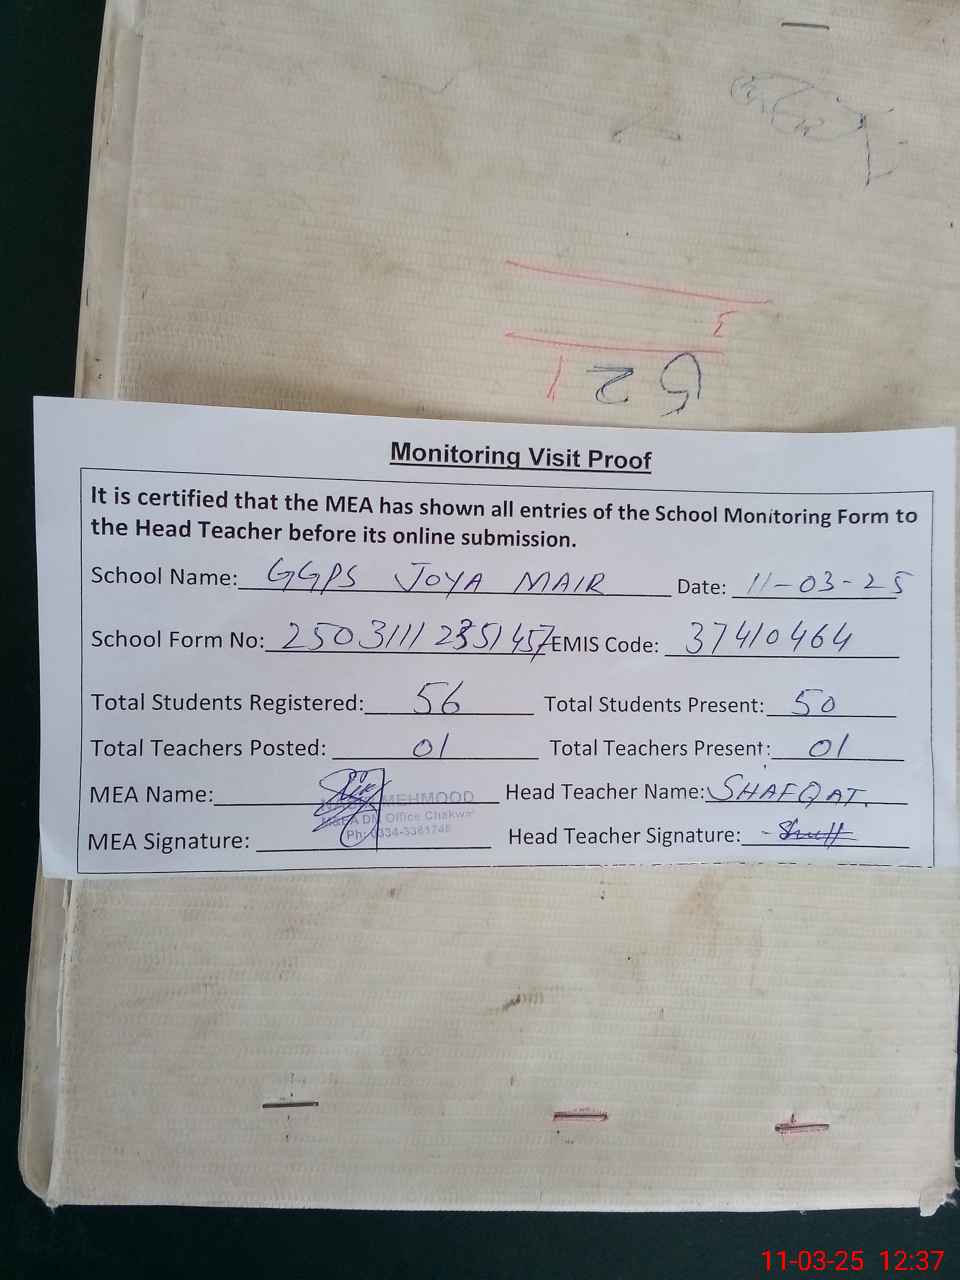 621
Monitoring Visit Proof
It is certified that the MEA has shown all entries of the School Monitoring Form to
the Head Teacher before its online submission.
School Name: GGPS JOYA MAIR Date: 11-03-25
School Form No: EMIS Code: 37410464
Total Students Registered: 56 Total Students Present: 50
Total Teachers Posted: 01 Total Teachers Present: 01
MEA Name: MEHMOOD Head Teacher Name: SHAFQAT.
Office Chakwal
MEA Signature: Head Teacher Signature:
11-03-25 12:37